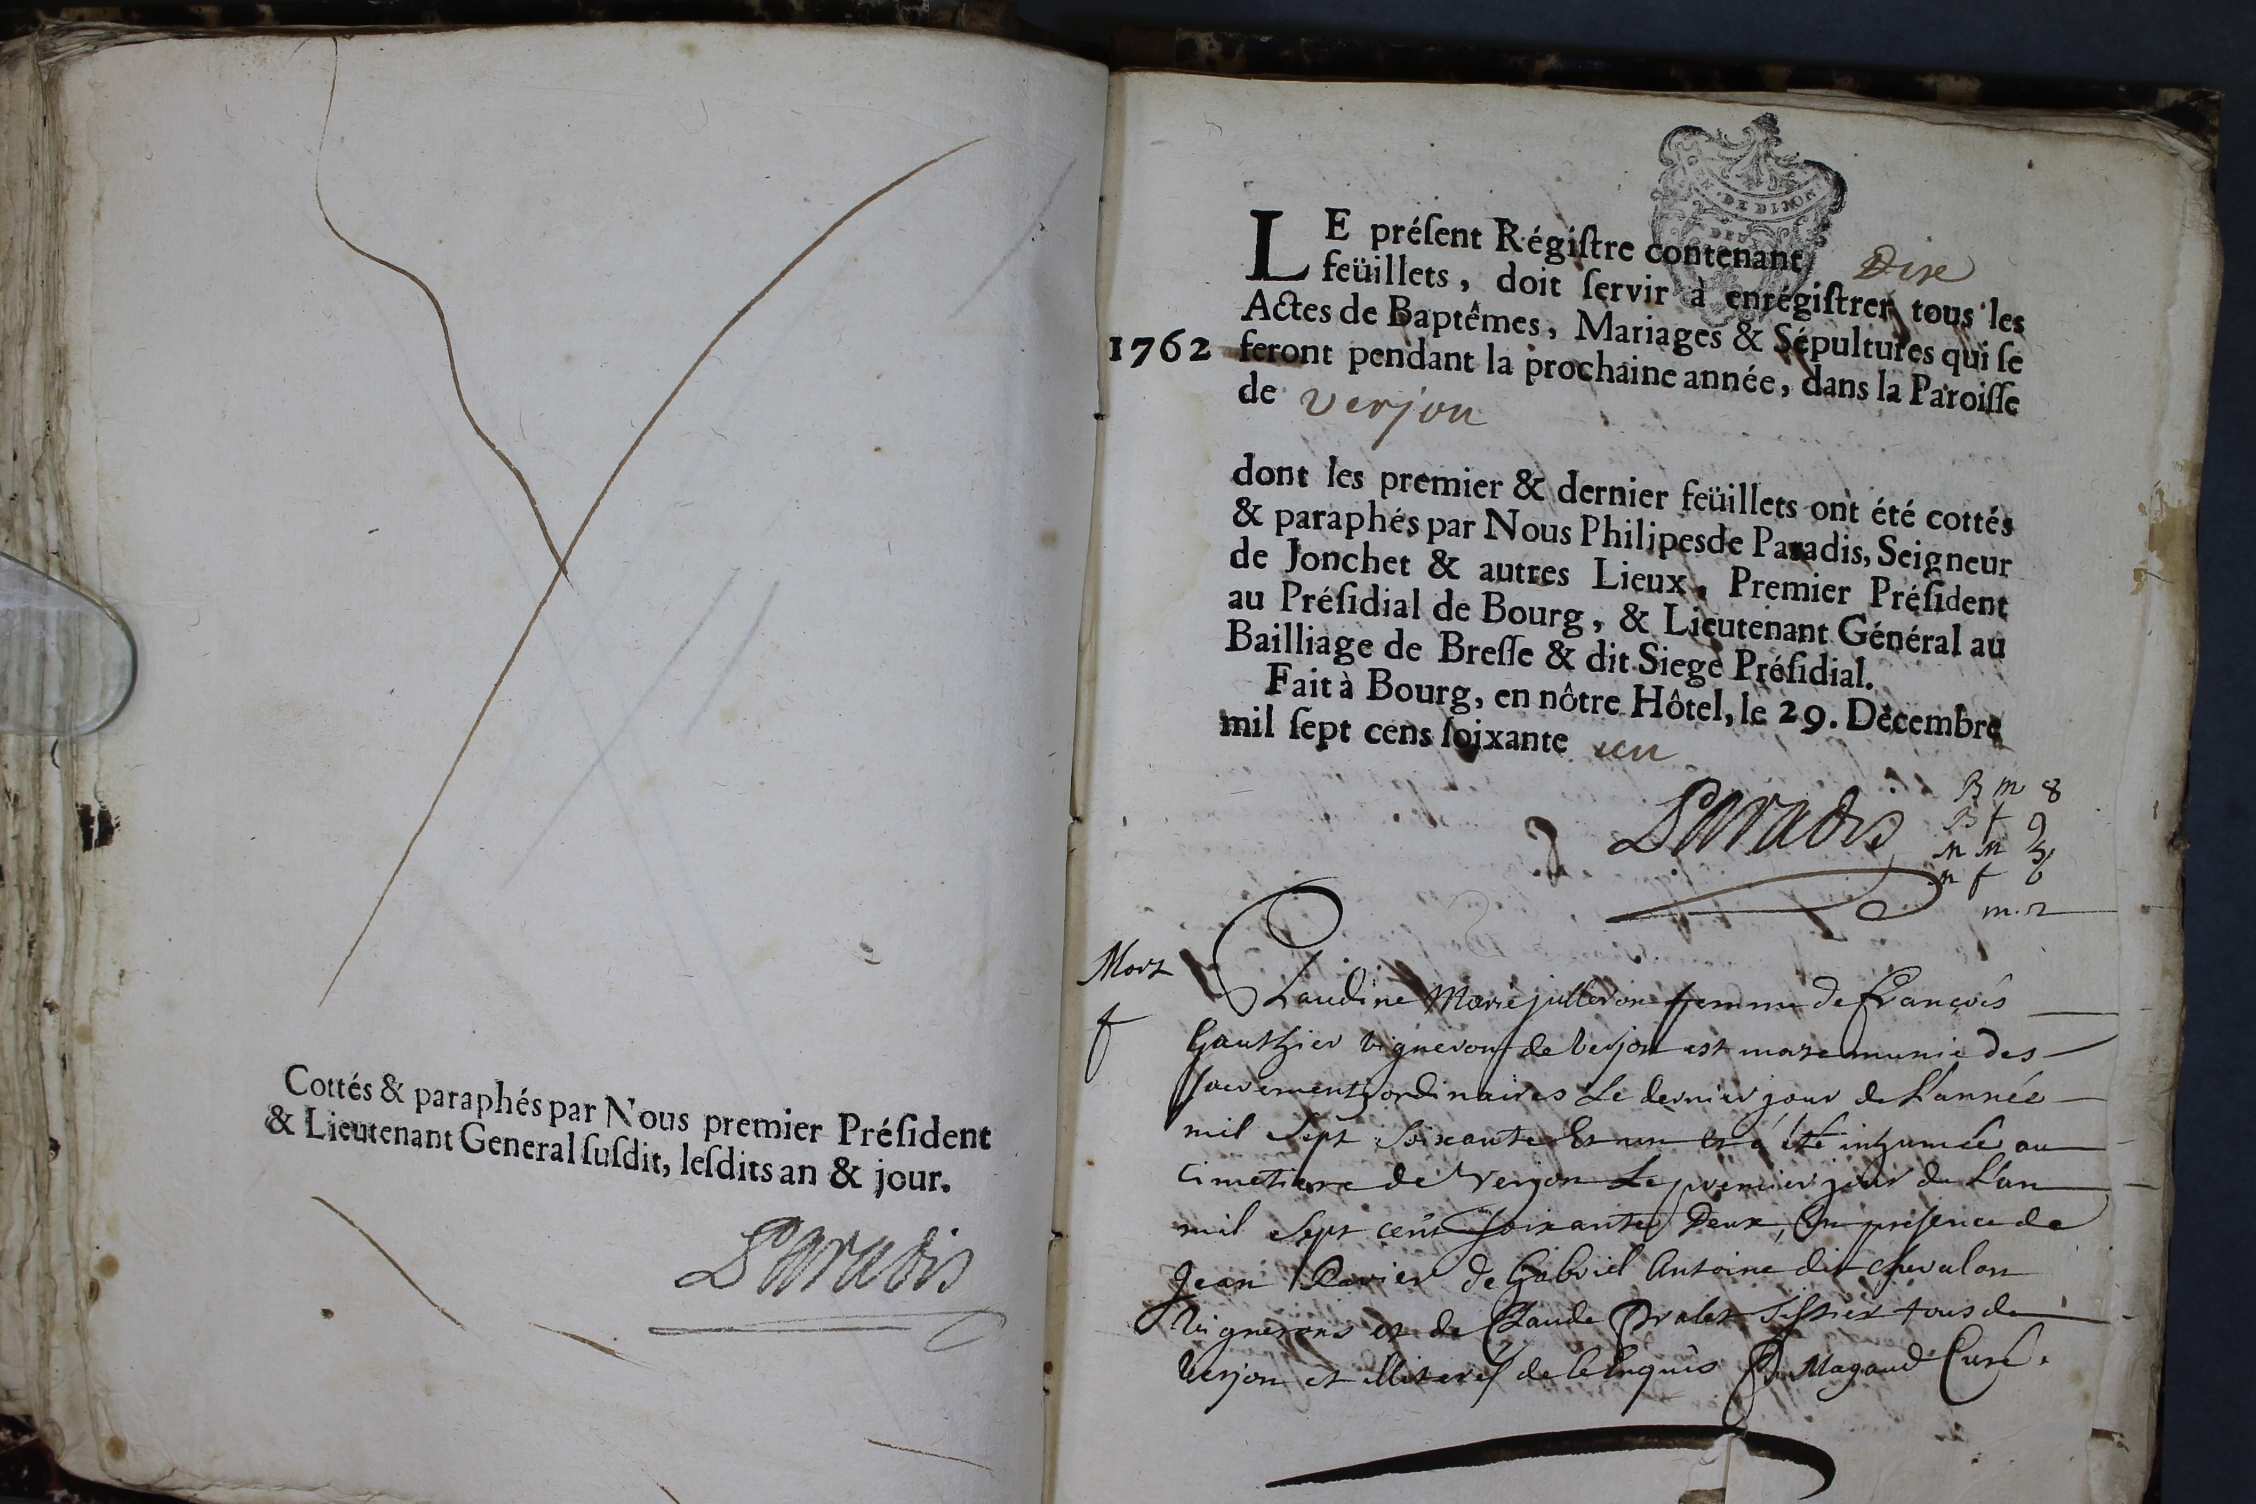 Cottés & paraphés par Nous premier Préſident
& Lieutenant General ſuſdit, leſdits an & jour.
Paradis
DE DIJON
LE préſent Régiſtre contenant Dix
feüillets, doit ſervir à enrégiſtrer tous les
Actes de Baptêmes, Mariages & Sépultures qui ſe
1762 feront pendant la prochaine année, dans la Paroiſſe
de verjon
dont les premier & dernier feüillets ont été cottés
& paraphés par Nous Philipes de Paradis, Seigneur
de Jonchet & autres Lieux, Premier Préſident
au Préſidial de Bourg, & Lieutenant Général au
Bailliage de Breſſe & dit Siege Préſidial.
Fait à Bourg, en nôtre Hôtel, le 29. Décembre
mil ſept cens ſoixante un
Paradis
B m 8
B f 9
m m
m f 6
m. 2
Mort
f
Claudine Marie julleron femme de françois
Gauthier vigneron de verjon est morte munie des
sacrements ordinaires Le dernier jour de L'année
mil Sept Soixante Et un et a été inhumée au
cimetiere de Verjon Le premier jour de L'an
mil Sept cent soixante Deux, En présence de
Jean Ravier de Gabriel Antoine dit chevalon
Vignerons et de Claude Pralet tissier tous de
Verjon et illiterés de ce Enquis P. Magaud Curé.